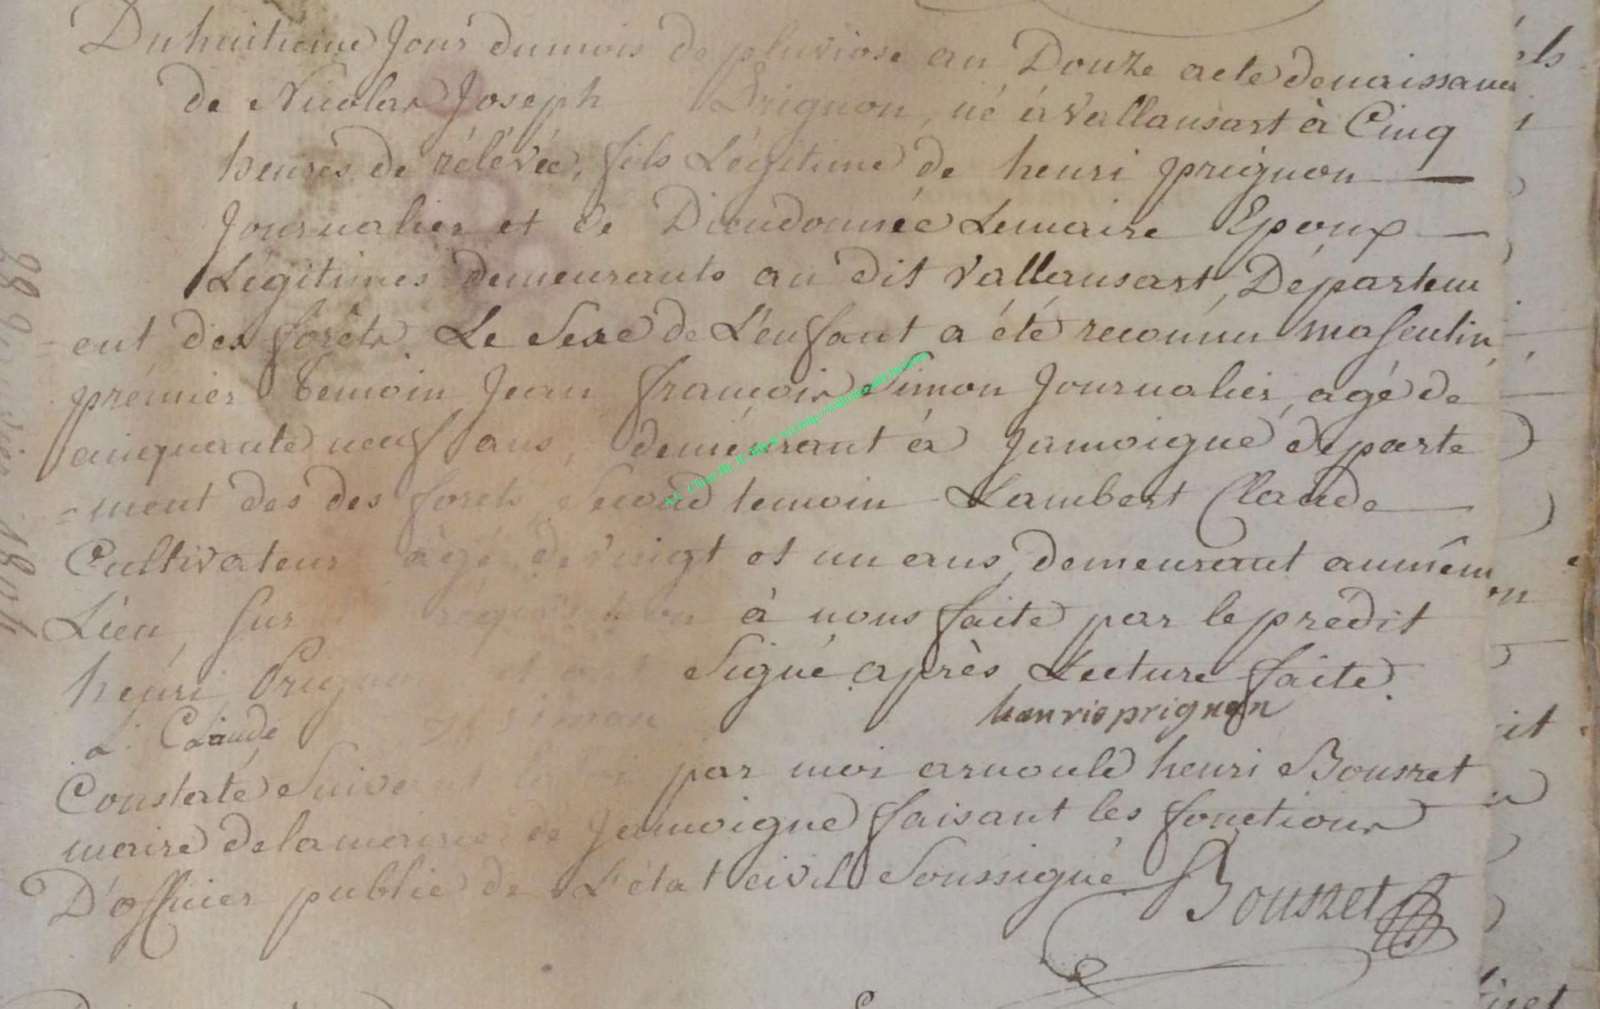 Du huitieme Jour du mois de pluviose an Douze acte de naissance
de Nicolas Joseph Prignon, né à Vallansart à Cinq
heures de rélévée, fils Légitime de henri prignon
Journalier et de Dieudonnée Lemaire Epoux
Légitimes demeurants au dit Vallansart, Départem
ent des forêts Le Sexe de L'enfant a été reconnu masculin,
prémier temoin Jean françois Simon Journalier, agé de
cinquante neuf ans, demeurant à Jamoigne départe
=ment des des forets Second temoin Lambert Claude
Cultivateur agé de vingt et un ans, demeurant au mêm
Lieu, Sur à nous faite par le predit
henri Prignon et ont Signé après Lecture faite.
L. Claude simon henris prignon
Constaté Suivant par moi arnould henri Bousret
maire de la mairie de Jamoigne faisant les fonctions
D'officier public de L'état civil Soussigné
Bousret
28 Janvier 1804